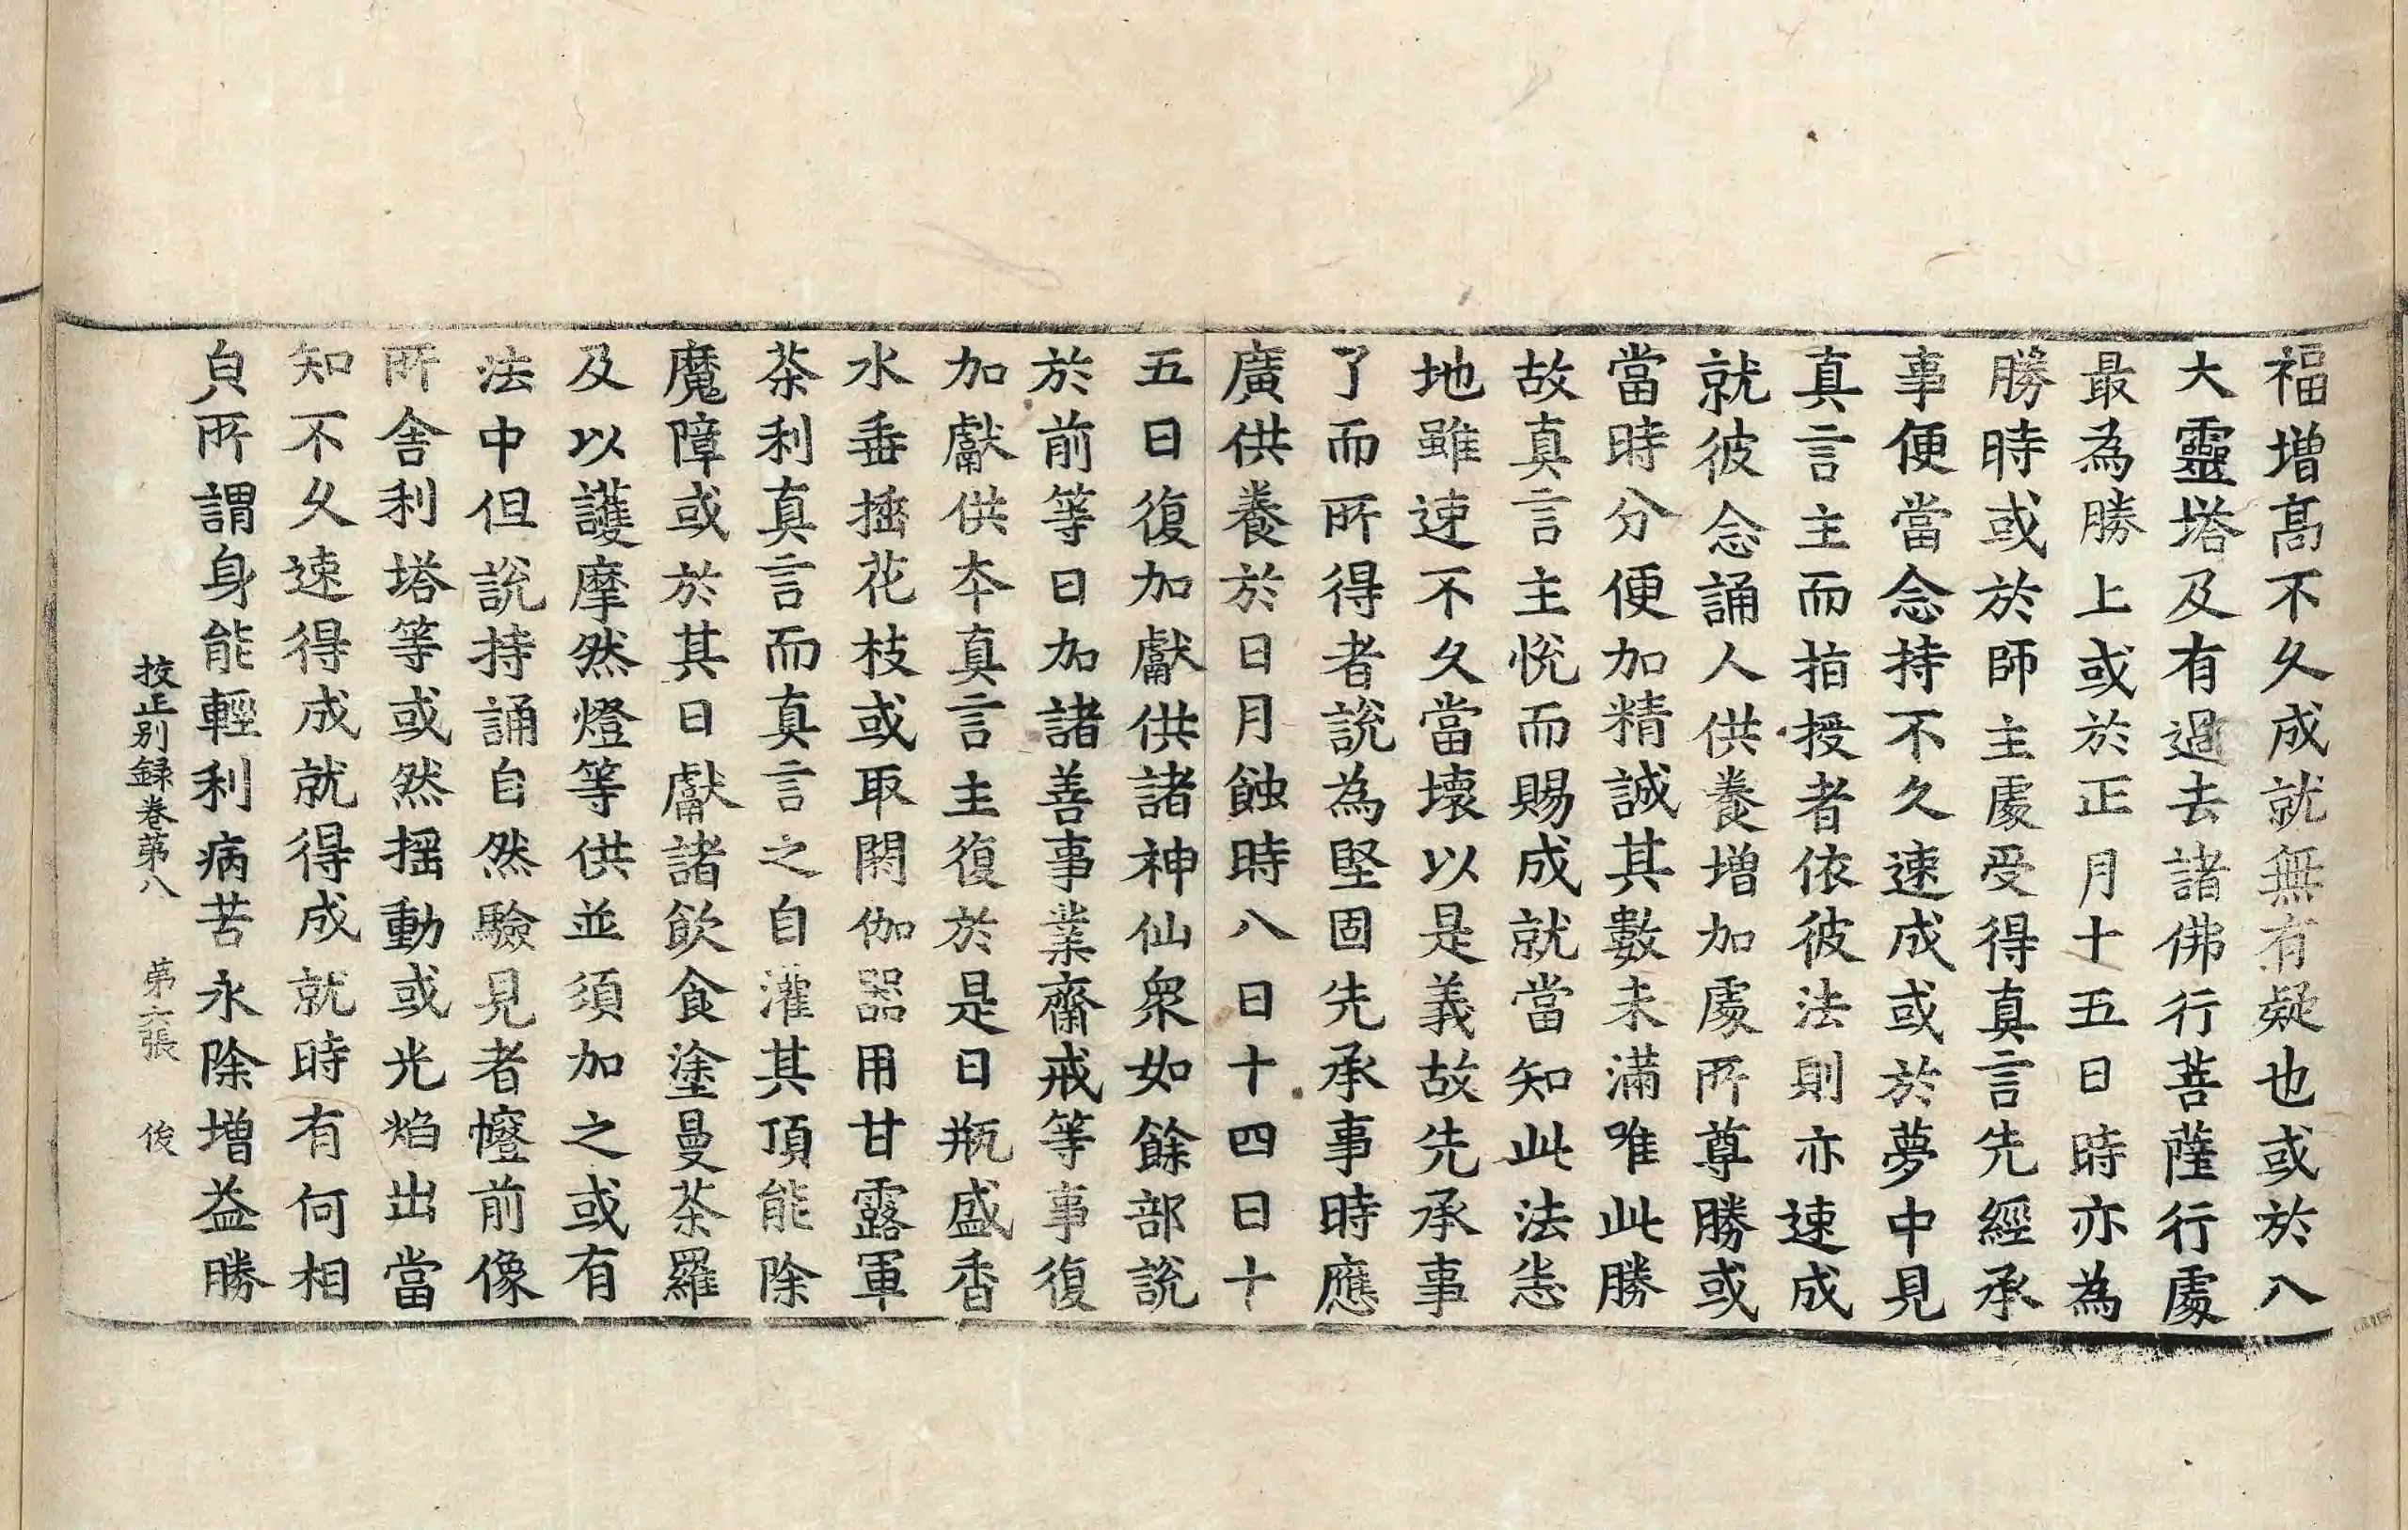 福增髙不久成就無有疑也或於八
大靈塔及有過去諸佛行菩薩行處
最為勝上或於正月十五日時亦為
勝時或於師主處受得真言先經承
事便當念持不久速成或於夢中見
真言主而指授者依彼法則亦速成
就彼念誦人供養增加處所尊勝或
當時分便加精誠其數未滿唯此勝
故真言主悅而賜成就當知此法恙
地雖速不久當壞以是義故先承事
了而所得者說為堅固先承事時應
廣供養於日月蝕時八日十四日十
五日復加獻供諸神仙衆如餘部說
於前等日加諸善事業齋戒等事復
加獻供本真言主復於是日瓶盛香
水垂插花枝或取閼伽器用甘露軍
荼利真言而真言之自灌其頂能除
魔障或於其日獻諸飲食塗曼荼羅
及以護摩然燈等供並須加之或有
法中但說持誦自然驗見者㡧前像
所舍利塔等或然搖動或光焰出當
知不久速得成就得成就時有何相
皃所謂身能輕利病苦永除增益勝
挍正別録卷苐八 苐六張 俊